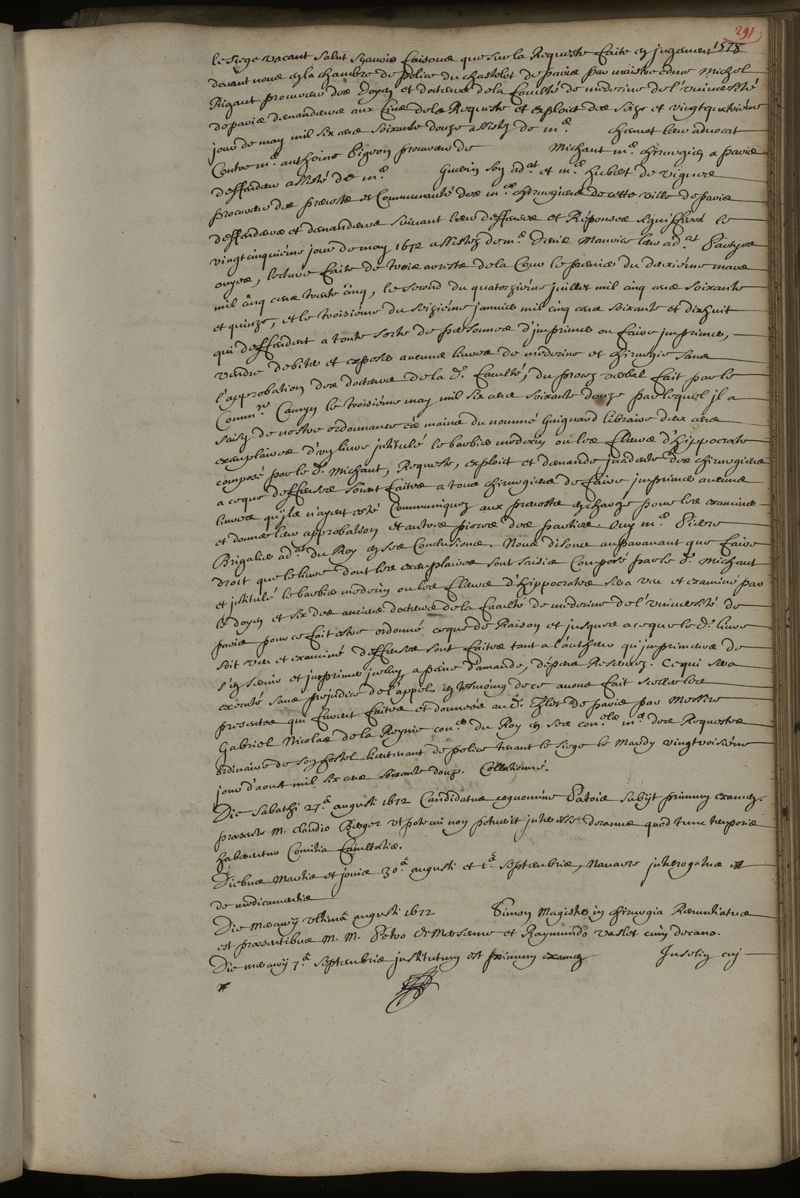 291
1578
le siege vacant salut scavoir faisons que sur la Requeste faite en jugement
devant nous en la chambre de police du chastelet de paris par maistre Edme Michel
Rigaut procureur des Doyen et docteurs de la faculté de medecine de l'université
de paris demandeurs aux fins de la Requeste et exploit des seize et vingt quatrieme
jour de may mil six cens soixante douze assisté de m.e chenet leur advocat
Contre m.e anthoine Pigeon procureur de Michaut m.e chirurgien a paris
deffendeur assisté de m.e Guerin son ad.at et m.e hublet de vignere
procureur des prevosts et Communauté des m.es chirurgiens de cette ville de paris
deffendeurs et demandeurs suivant leurs deffences et Réponses signiffiées le
vingt cinquiéme jour de may 1672 assistez de m.e Denis Mauvice leur ad.at Partyes
ouyes, lecture faite de trois arrests de la Cour le premier du deuxiéme mars
mil cinq cens trente cinq, le second du quatorziéme juillet mil cinq cens soixante
et quinze, et le troisiéme du seiziéme janvier mil cinq cens soixante et dixhuit
qui deffendent a toute sorte de personnes d'imprimer ou faire imprimer,
vendre debiter et exposer aucuns livres de medecine et chirurgie sans
l'approbation des docteurs de la d.e faculté, du procez verbal fait par le
Comm.re Camyn le troisiéme may mil six cens soixante douze par lequel il a
saisy de nostre ordonnance és mains du nommé Guignard libraire deux cens
exemplaires d'un livre jntitulé le barbier moderin ou les Elleves d'hippocrate
composé par le d. Michaut, Requeste, exploit et demande judiciaire des chirurgiens
a ceque deffenses soient faites a tous chirurgiens de faire jmprimer aucuns
livres qu'ils n'ayent esté Communiquez aux prevosts en charge pour les examiner
et donner leur approbation et autres pieces des parties Ouy m.e Pierre
Brigalier ad.at du Roy en ses Conclusions. Nous disons auparavant que faire
droit que le livre dont les exemplaires sont saisis Composé par le d. Michaut
et jntitulé le barbier moderin ou les Elleves d'hippocrates sera veu et examiné par
le doyen et six des anciens docteurs de la faculté de medecine de l'université de
paris pour ce fait estre ordonné ceque de Raison et jusques a ceque le d. livre
soit veu et examiné deffenses sont faites tant a l'autheur qu'jmprimeurs de
s'en servir et jmprimer jceluy a peine d'amande, dépens Reservez. Ce qui sera
executé sans prejudice de l'appel, en tesmoing de ce avons fait sceller ces
presentes qui furent faites et données au d. Ch.let de paris par Messire
Gabriel Nicolas de la Reynie con.er du Roy en ses con.els m.e des Requestes
ordinaire de son hostel lieutenant de police tenant le siege le Mardy vingt troisiéme
jour d'aoust mil six cens soixante douze. Collationné.
Die Sabathi 27.a augusti 1672 Candidatus cognomine Patois subijt primum examen.
praesente M. claudio Berger ut pote cui non potuerit jnteresse decanus quod tunc temporis
haberentur Comitia facultatis.
Diebus Martis et jovis 30.a augusti et 1.a Septembris, Navarre jnterrogatus est
de medicamentis
Die mercurij ultimâ augusti 1672 Simon Magister in chirurgia Renuntiatus
est praesentibus M. M. Petro de Mersenne et Raymundo vaslet cum decano.
Die mercurij 7.a Septembris jnstitutum est primum examen Juselin cuj